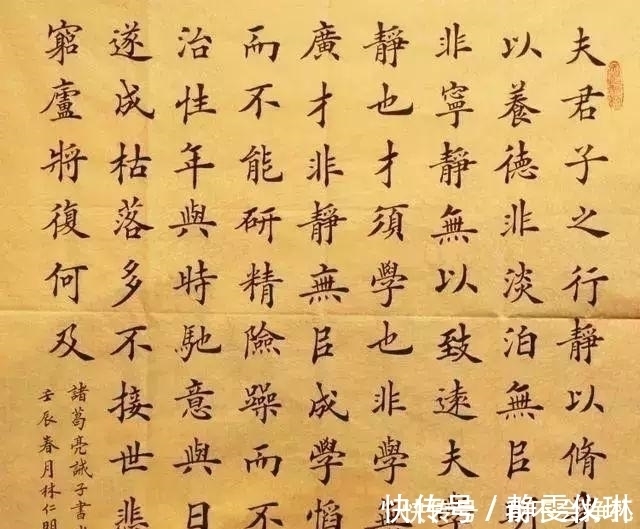 夫君子之行靜以脩
以養德非淡泊無㠯
非寧靜無以致遠夫
靜也才須學也非學
廣才非靜無㠯成學慆
而不能研精險躁而不
治性年與時馳意與日
遂成枯落多不接世悲
窮廬將復何及
諸葛亮誡子書
壬辰春月林仁明
快传号 / 静雯伙琳